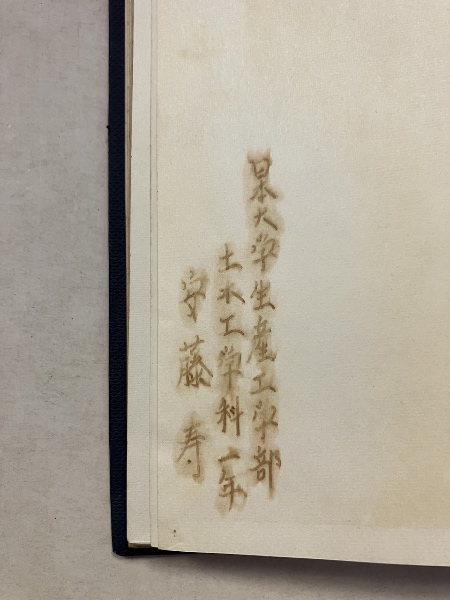 日本大学生産工学部
土木工学科一年
藤寿